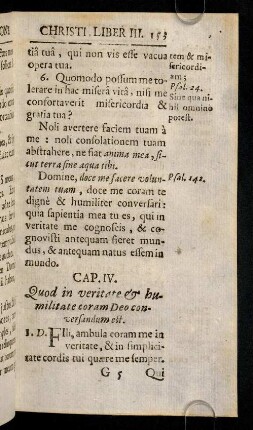 CHRISTI. LIBER III. 153
tiâ tuâ, qui non vis esse vacua
opera tua.
6. Quomodo possum me to-
lerare in hac miserâ vitâ, nisi me
confortaverit misericordia &
gratia tua?
Noli avertere faciem tuam à
me: noli consolationem tuam
abstrahere, ne fiat anima mea, si-
cut terra sine aqua tibi.
Domine, doce me facere volun-
tatem tuam, doce me coram te
dignè & humiliter conversari:
quia sapientia mea tu es, qui in
veritate me cognoscis, & co-
gnovisti antequam fieret mun-
dus, & antequam natus essem in
mundo.
tem & mi-
sericordi-
am;
Psal. 24.
Sine qua ni-
hil omnino
potest.
Psal. 142.
CAP. IV.
Quod in veritate & hu-
militate coram Deo con-
versandum est.
1. D. FIli, ambula coram me in
veritate, & in simplici-
tate cordis tui quære me semper.
G 5 Qui